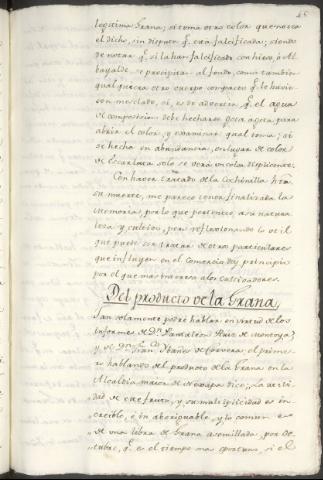 45
legitima Grana; si toma otro color que no sea
el dicho, sin disputa q.e esta falcificada; siendo
de notar q.e si la han falcificado con hieso, ò Al-
bayalde, se precipitan al fondo, como tambien
qualquiera otro cuerpo compacto q.e le huvie-
sen mesclado, si, es de advertir q.e el agua
de composicion debe hecharse poca apoca, para
abrir el color, y examinar qual toma; si
se hecha en abundancia, en lugar de color
de Escarlata solo se verà un cola
Con haver tratado de la Cochinilla hta.
su muerte, me parece tener finalizada la
Memoria, por lo que pertenece, asu natura-
leza y cultivo, pero reflexionando lo util
que puede ser tratar de otro particulares
que influyen en el Comercio doy principio
por el que mas interesa alos cultivadores.
Del producto de la Grana
Tan solamente podrè hablar en virtud de los
Informes de Dn. Pantaleon Ruiz de Montoya,
y de Dn. Fran. Ibañes de Corvera: el prime-
ro hablando del producto de la Grana en la
Alcaldia maior de Nexapa dice, La utili-
dad de este fruto, y su multiplicidad es in-
creible, è in aberiguable, y lo comun es
de una libra de Grana asemillada, por Oc-
tubre, q.e es el tiempo mas oportuno, si el